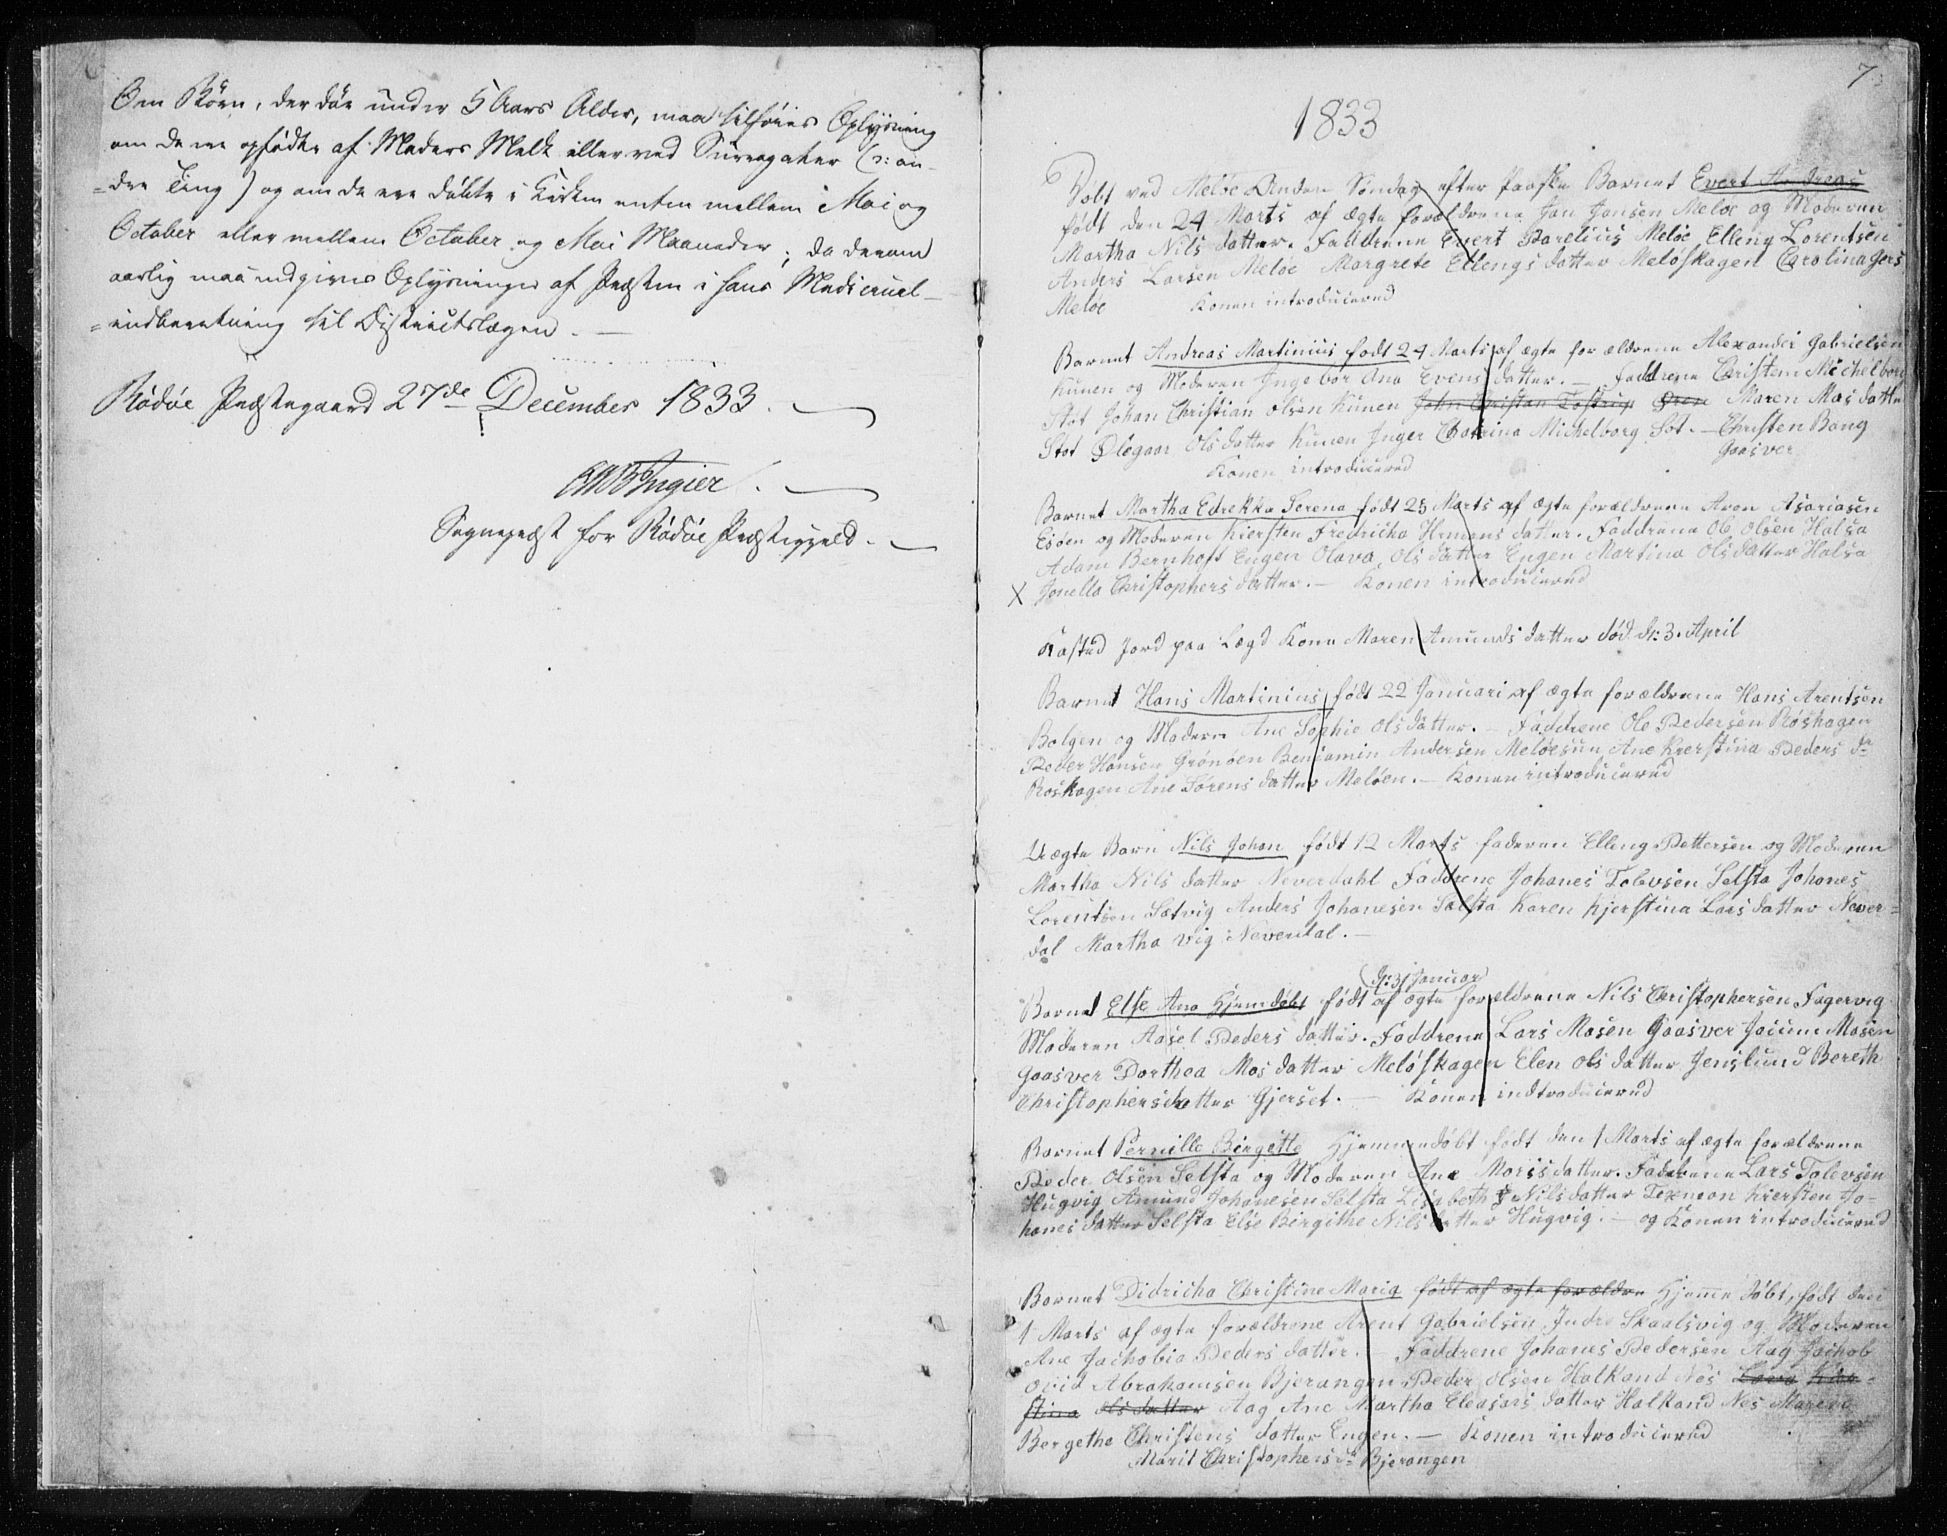 Om Børn, der døe under 5 Aars Alder, maa tilføies Oplysning
om de ere opfødte af Moders Melk eller ved Surrogater (ɔ: an-
=dre Ting) og om de ere døbte i Kirken enten mellem Mai og
October eller mellem October og Mai Maaneder; da derom
aarlig maa indgives Oplysninger af Præsten i hans Medicinal-
=indberetning til Districtslægen. —
Rødøe Præstegaard 27de December 1833. —
Angier. —
Sognepræst for Rødøe Præstegjeld. —
7
1833
Døbt ved Meløe Anden Søndag efter Paaske Barnet Evert Andreas
født den 24 Marts af ægte forældrene Jan Jansen Meløe og Moderen
Martha Nils datter. Faddrene Evert Borelius Meløe Elling Lorentsen
Anders Larsen Meløe Margrete Ellings datter Meløskagen Carolina Jers
Meløe Konen introduicerud
Barnet Andreas Martinius født 24 Marts af ægte forældrene Alexander Gabrielsen
Kunen og Moderen Ingebor Ana Evens datter. — Faddrene Christen Michelborg
Stot Johan Christian Olsen Kunen John Christan Tostrup Maren Mas datter
Stot Olegaar Ols datter Kunen Inger Chatrina Michelborg Stot. — Christen Bang
Gaasver
Konen introduicerud
Barnet Martha Edrekka Serena født 25 Marts af ægte forældrene Aron Asariasen
Esøen og Moderen Kiersten Fredricka Hemens datter. Faddrene Ole Olsen Halsa
Adam Bernhoft Engen Olava Ols datter Engen Martina Ols datter Halsa
X Jonella Christophers datter. — Konen introduicerud
Kastud Jord paa Lægd Kone Maren Amunds datter død d: 3. April
Barnet Hans Martinius født 22 Januari af ægte forældrene Hans Arentsen
Bolgen og Modern Ane Sophie Ols datter. — Faddrene Ole Pedersen Røskagen
Peder Hansen Grønøen Beniamin Andersen Meløesun Ane Kierstina Peders dr
Roskagen Ane Sørens datter Meløen. — Konen introduicerud
Uægte Barn Nils Johan født 12 Marts faderen Elling Pettersen og Moderen
Martha Nils datter Neverdahl Faddrene Johanes Tolevsen Selsta Johanes
Lorentsen Sætvig Anders Johanesen Selsta Karen Kjerstina Lars datter Never=
dal Martha Vig Neverdal. —
d: 31 Januar
Barnet Else Ana Hjemdøbt født af ægte forældrene Nils Christophersen Fagervig
Moderen Aasel Peders datter. Faddrene Lars Masen Gaasver Jocum Masen
Gaasver Dorthea Mas datter Meløskagen Elen Ols datter Jenslund Bereth
Christophersdatter Gjerset. — Konen indtroduicerud
Barnet Pernille Birgitte Hjemmedøbt født den 1 Marts af ægte forældrene
Peder Olsen Selsta og Moderen Ane Moris datter. Faddrene Lars Tolevsen
Hugvig Amund Johanesen Selsta Lisabeth Nils datter Texmon Kiersten Jo-
hanes datter Selsta Else Birgithe Nils datter Hugvig. — og Konen introduicerud
Barnet Didricha Christine Maria født af ægte forældre Hjemme døbt, født den
1 Marts af ægte forældrene Arent Gabrielsen Indre Skaalsvig og Moderen
Ane Jachobia Peders datter. — Faddrene Johanes Pedersen Aag Jachob
Ovid Abrahamsen Bjerangen Peder Olsen Halkand Nes Lava Kier=
stina Ols datter Aag Ane Martha Eleasars datter Halkand Nes Maren
Bergethe Christens datter Engen. — Konen introduicerud
Marit Christophers dr Bjerangen